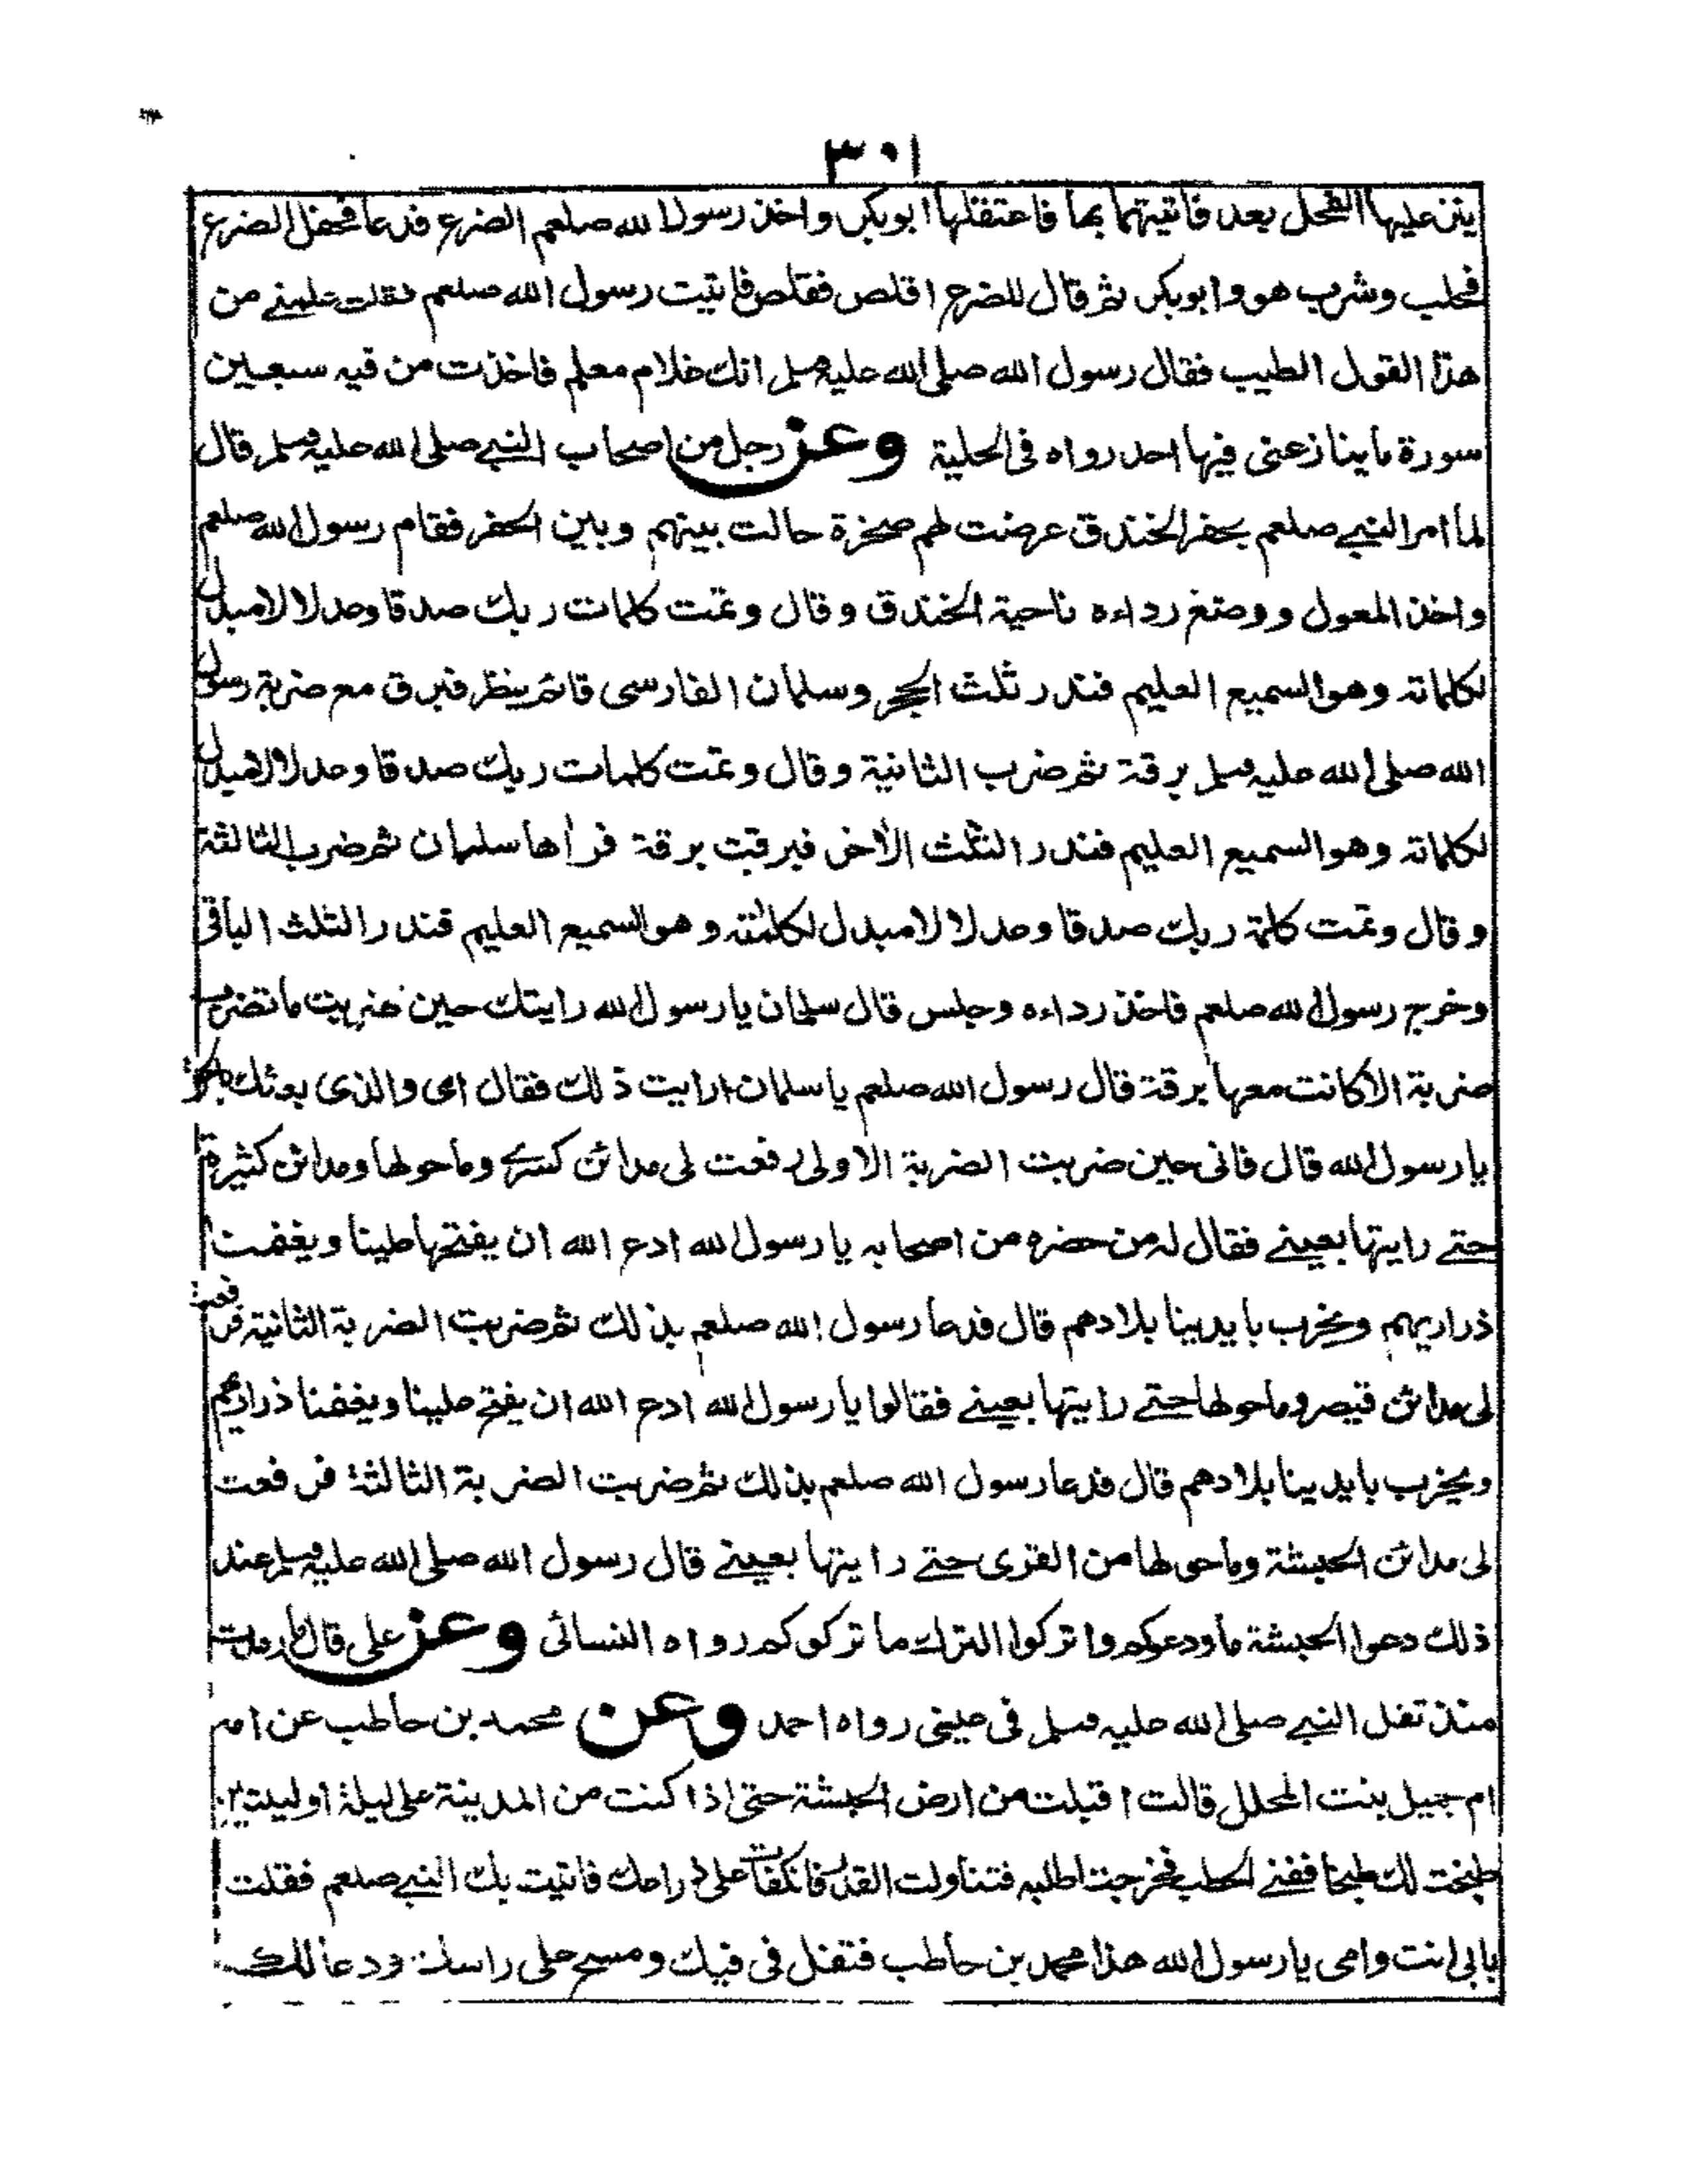 ٣٠١
ينز عليها الفحل بعد فاتيتهما بها فاعتقلها ابوبكر واخذ رسول الله صلعم الضرع فدعا فحفل الضرع
فحلب وشرب هو وابوبكر ثم قال للضرع اقلص فقلص فاتيت رسول الله صلعم فقلت علمني من
هذا القول الطيب فقال رسول الله صلى الله عليه وسلم انك غلام معلم فاخذت من فيه سبعين
سورة ما ينازعنى فيها احد رواه فى الحلية وعن رجل من اصحاب النبي صلى الله عليه وسلم قال
لما امر النبي صلعم بحفر الخندق عرضت لهم صخرة حالت بينهم وبين الحفر فقام رسول الله صلعم
واخذ المعول ووضع رداءه ناحية الخندق وقال وتمت كلمات ربك صدقا وعدلا لا مبدل
لكلماته وهو السميع العليم فندر ثلث الحجر وسلمان الفارسى قائم ينظر فبرق مع ضربة رسول
الله صلى الله عليه وسلم برقة ثم ضرب الثانية وقال وتمت كلمات ربك صدقا وعدلا لا مبدل
لكلماته وهو السميع العليم فندر الثلث الاخر فبرقت برقة فرأها سلمان ثم ضرب الثالثة
وقال وتمت كلمة ربك صدقا وعدلا لا مبدل لكلمته وهو السميع العليم فندر الثلث الباقى
وخرج رسول الله صلعم فاخذ رداءه وجلس قال سلمان يا رسول الله رايتك حين ضربت ما تضرب
ضربة الا كانت معها برقة قال رسول الله صلعم يا سلمان ارايت ذلك فقال اى والذى بعثك بالحق
يا رسول الله قال فانى حين ضربت الضربة الاولى رفعت لى مدائن كسرے وما حولها ومدائن كثيرة
حتے رايتها بعينے فقال له من حضره من اصحابه يا رسول الله ادع الله ان يفتحها علينا ويغفمنا
ذراريهم ويخرب بايدينا بلادهم قال فدعا رسول الله صلعم بذلك ثم ضربت الضربة الثانية فرفعت
لى مدائن قيصر وما حولها حتے رايتها بعينے فقالوا يا رسول الله ادع الله ان يفتح علينا ويغفنا ذراريهم
ويخرب بايدينا بلادهم قال فدعا رسول الله صلعم بذلك ثم ضربت الضربة الثالثة فرفعت
لى مدائن الحبشة وما حولها من القرى حتے رايتها بعينے قال رسول الله صلى الله عليه وسلم عند
ذلك دعوا الحبشة ما ودعوكم واتركوا الترك ما تركوكم رواه النسائى وعن على قال ما رمدت
منذ تفل النبي صلى الله عليه وسلم فى عينى رواه احمد وعن محمد بن حاطب عن امه
ام جميل بنت المحلل قالت اقبلت من ارض الحبشة حتى اذا كنت من المدينة على ليلة او ليلتين
طبخت لك طبيخا ففنے الحطب فخرجت اطلبه فتناولت القدر فانكفات على ذراعك فاتيت بك النبي صلعم فقلت
بابى انت وامى يا رسول الله هذا محمد بن حاطب فتفل فى فيك ومسح على راسك ودعا لك